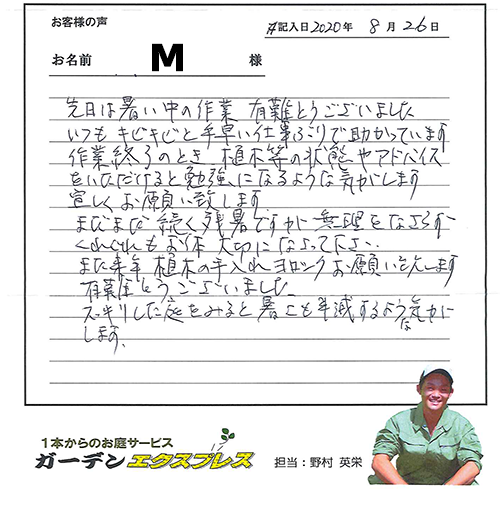 お客様の声
#記入日2020年 8月26日
お名前 M 様
先日は暑い中の作業 有難とうございました
いつもキビキビと手早い仕事ぶりで助かっています
作業終了のとき 植木等の状態やアドバイス
をいただけると勉強になるような気がします
宜しくお願い致します
まだまだ続く残暑ですが無理をなさらず
くれぐれもお体大切になさって下さい
また来年植木の手入れヨロシクお願いいたします
有難とうございました
スッキリした庭をみると暑さも半減するような気がに
します。
1本からのお庭サービス
ガーデンエクスプレス
担当：野村 英栄